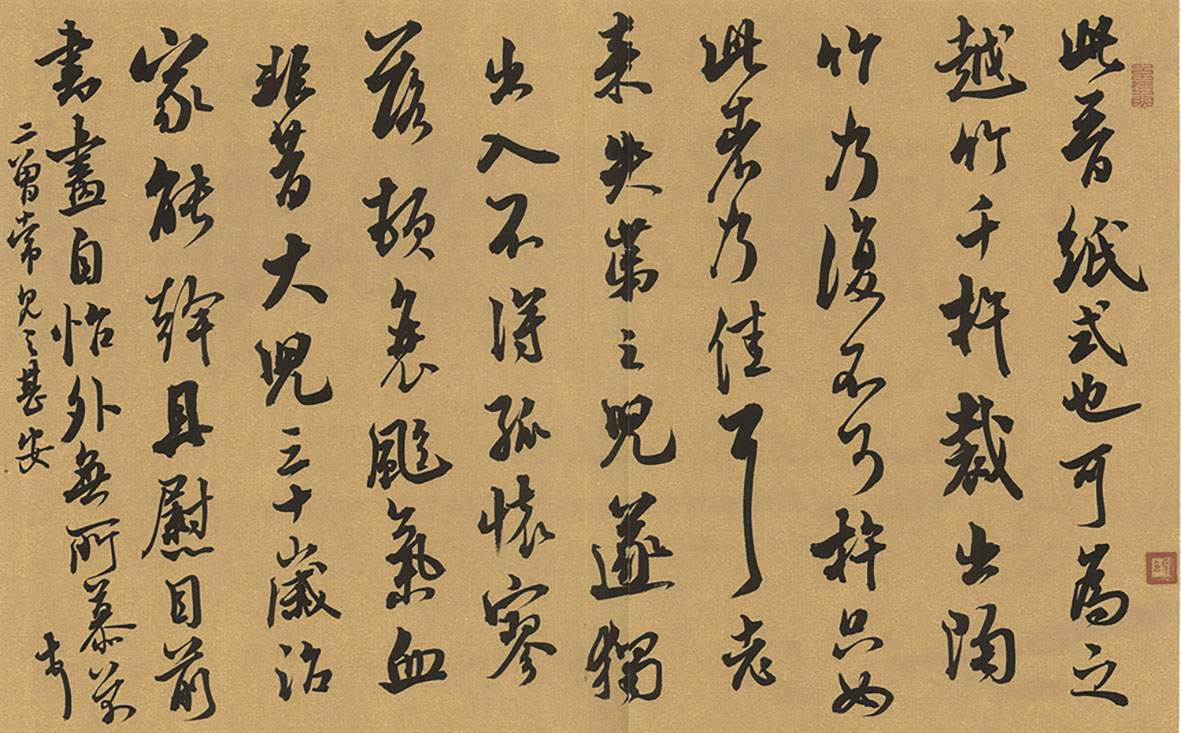 此晉紙式也可為之
越竹千杵裁出陶
竹乃復不可杵只如
此者乃佳耳老
来失之兒遂獨
出入不得孤懷寥
落頓衰颷氣血
非昔大兒三十歲治
家能幹且慰目前
書畫自怡外無所慕
二曾常見之甚安 芾